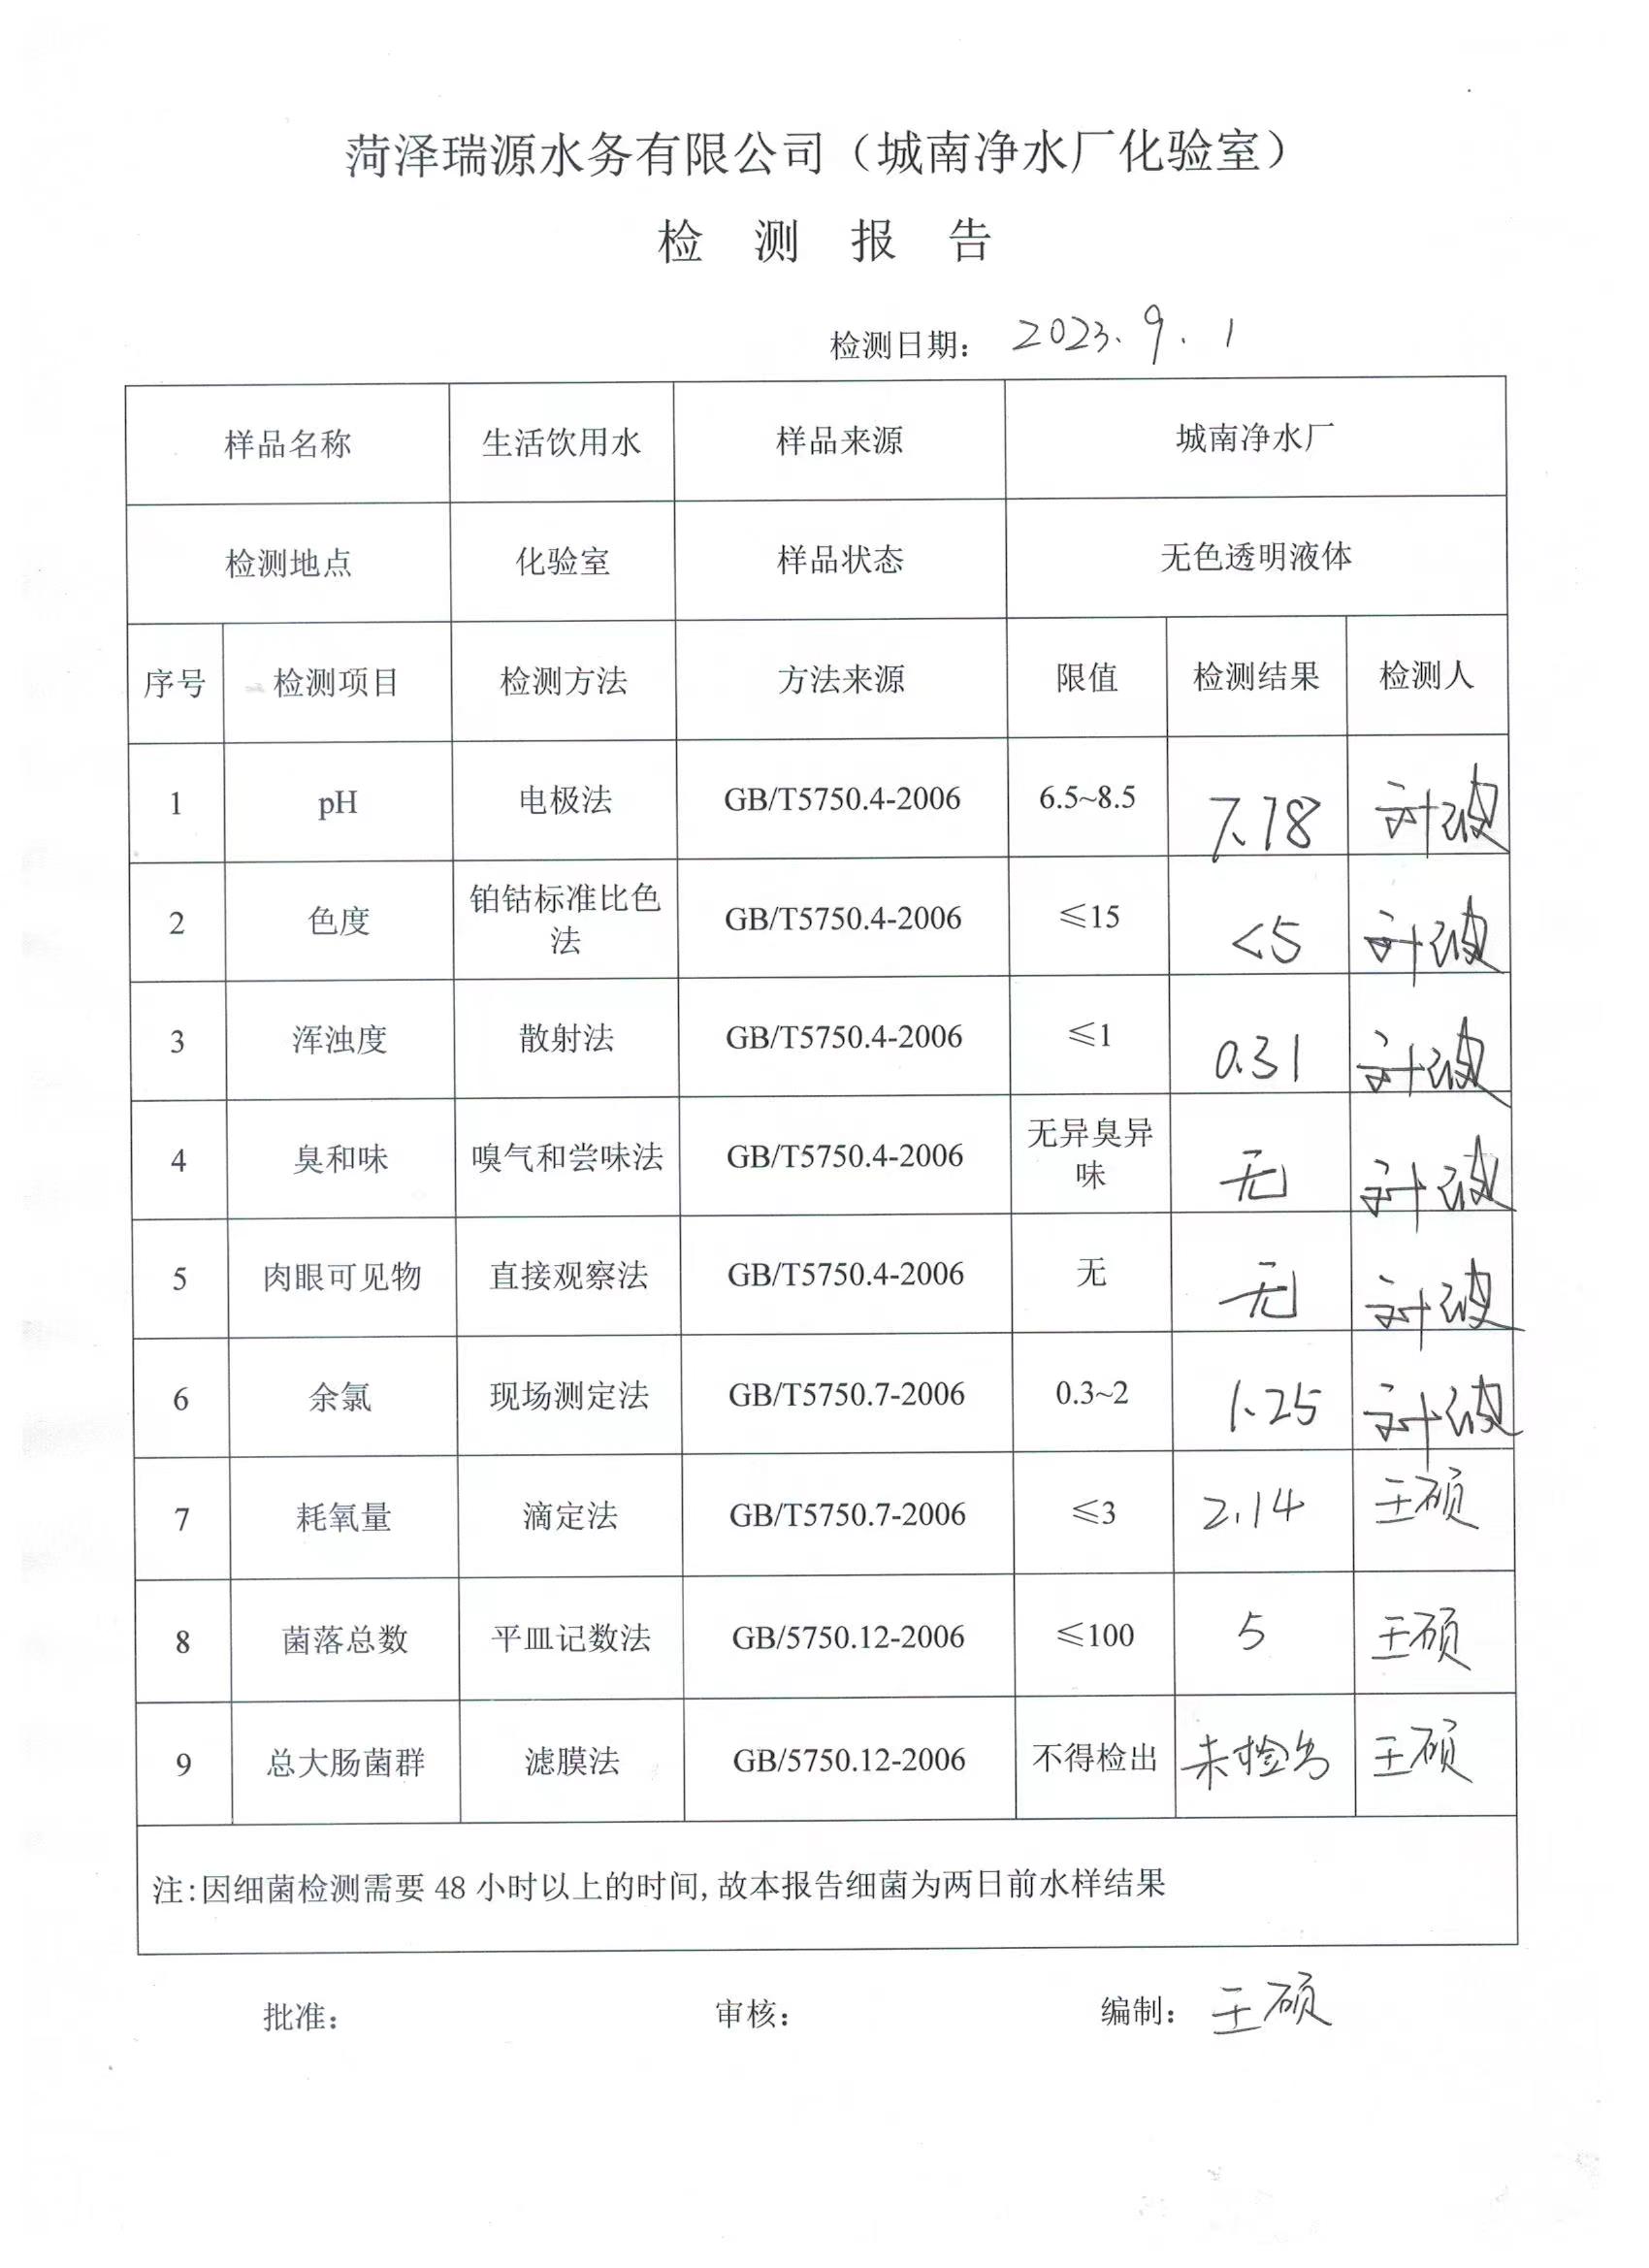 菏泽瑞源水务有限公司（城南净水厂化验室）
检 测 报 告
检测日期： 2023.9.1
样品名称 生活饮用水 样品来源 城南净水厂
检测地点 化验室 样品状态 无色透明液体
序号 检测项目 检测方法 方法来源 限值 检测结果 检测人
1 pH 电极法 GB/T5750.4-2006 6.5~8.5 7.78
2 色度 铂钴标准比色法 GB/T5750.4-2006 ≤15 <5
3 浑浊度 散射法 GB/T5750.4-2006 ≤1 0.31
4 臭和味 嗅气和尝味法 GB/T5750.4-2006 无异臭异味 无
5 肉眼可见物 直接观察法 GB/T5750.4-2006 无 无
6 余氯 现场测定法 GB/T5750.7-2006 0.3~2 1.25
7 耗氧量 滴定法 GB/T5750.7-2006 ≤3 2.14 王硕
8 菌落总数 平皿记数法 GB/5750.12-2006 ≤100 5 王硕
9 总大肠菌群 滤膜法 GB/5750.12-2006 不得检出 未检出 王硕
注:因细菌检测需要 48 小时以上的时间,故本报告细菌为两日前水样结果
批准： 审核： 编制： 王硕